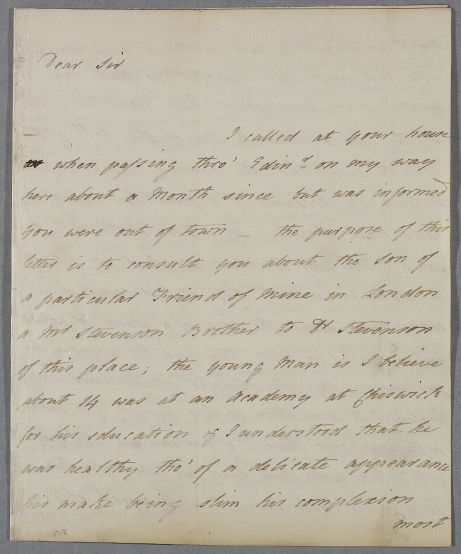 Dear Sir
I called at your house
when paſsing thro' Edinr. on my way
here about a Month since but was informed
you were out of town — the purpose of this
letter is to consult you about the son of
a particular Friend of mine in London
a Mr Stevenson Brother to Dr Stevenson
of this place; the young Man is I believe
about 14 was at an Academy at Chiswick
for his education & I understood that he
was healthy tho' of a delicate appearance
his make being slim his complexion
most
178